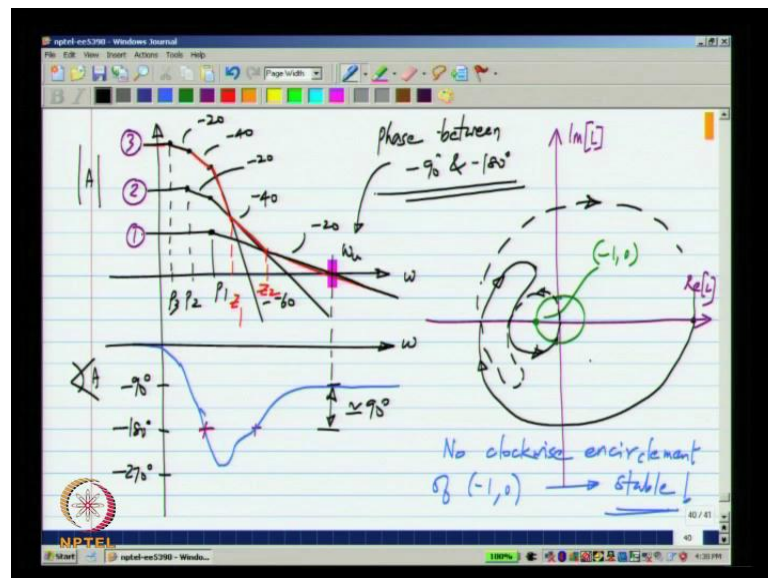 nptel-ee5390 - Windows Journal
File Edit View Insert Actions Tools Help
Page Width
B I
|A|
③ -20
-40
② -20
-40
① -20
-60
phase between
-90° & -180°
ωu
ω
p3 p2 p1 z1 z2
∠A
ω
-90°
-180°
-270°
≃90°
Im[L]
(-1,0)
Re[L]
No clockwise encirclement
of (-1,0) → stable!
NPTEL
40 / 41
40
Start
nptel-ee5390 - Windo...
100%
4:38 PM